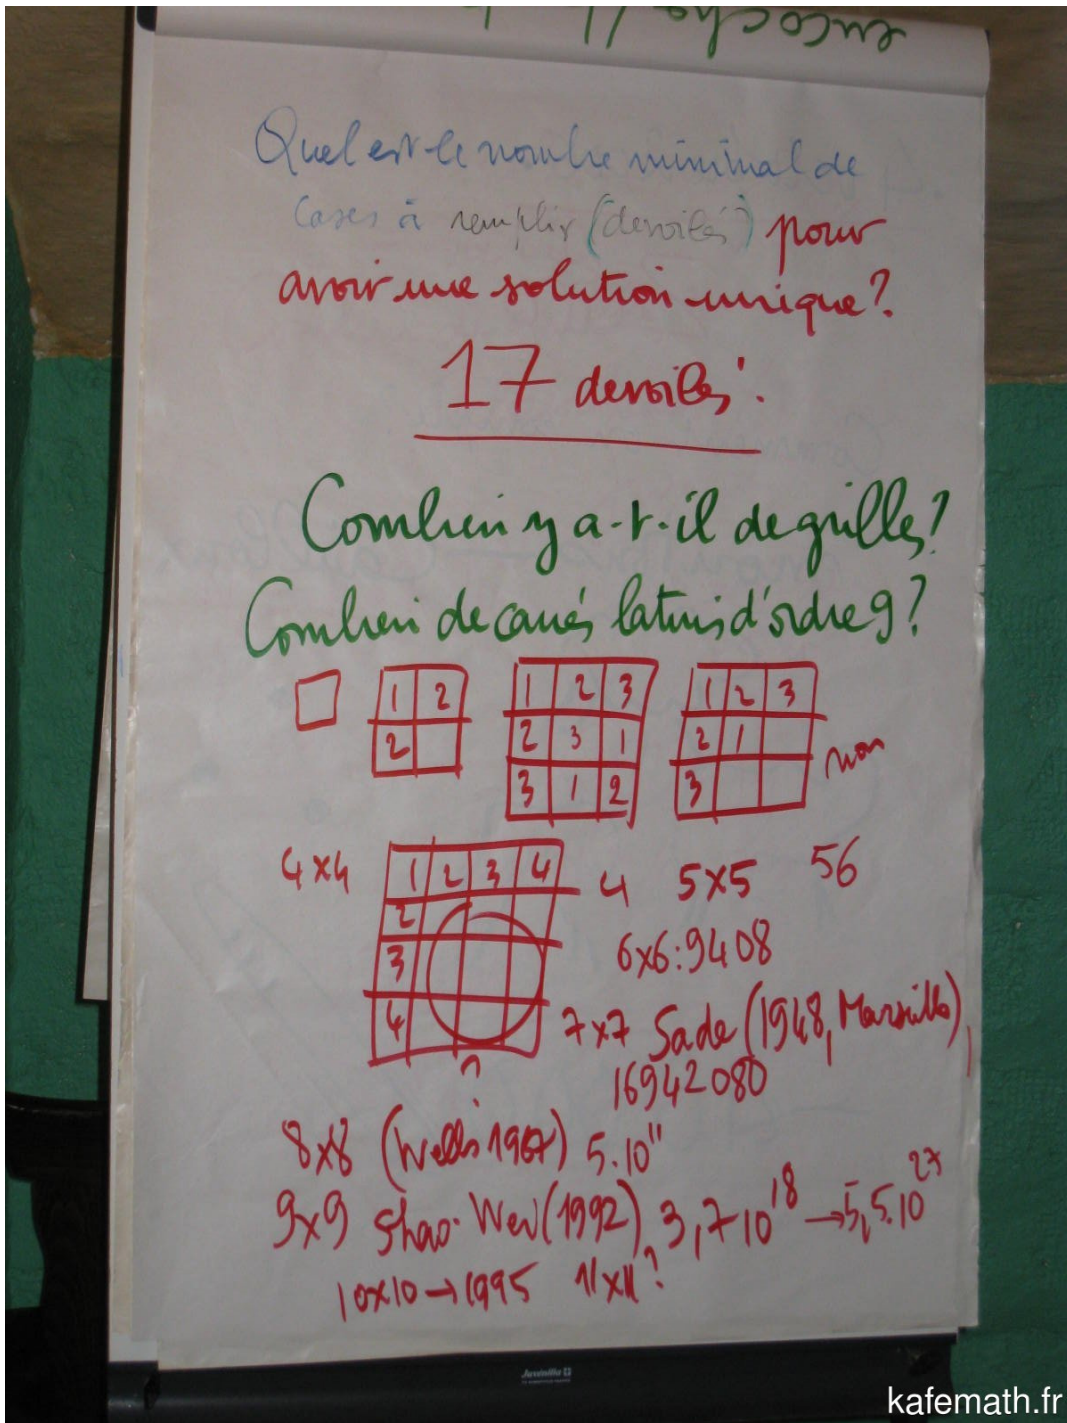 encoche
Quel est-le nombre minimal de
cases à remplir (dévoilés) pour
avoir une solution unique?
17 dévoilés.
Combien y a-t-il de grilles?
Combien de carrés latins d'ordre 9?
1 2
2
1 2 3
2 3 1
3 1 2
1 2 3
2 1
3
non
4x4
1 2 3 4
2
3
4
4 5x5 56
6x6: 9408
7x7 Sade (1948, Marseille),
16942080
8x8 (Wells 1967) 5.10¹¹
9x9 Shao-Wei (1992) 3,7 10¹⁸ → 5,5.10²⁷
10x10 → 1995 11x11?
kafemath.fr